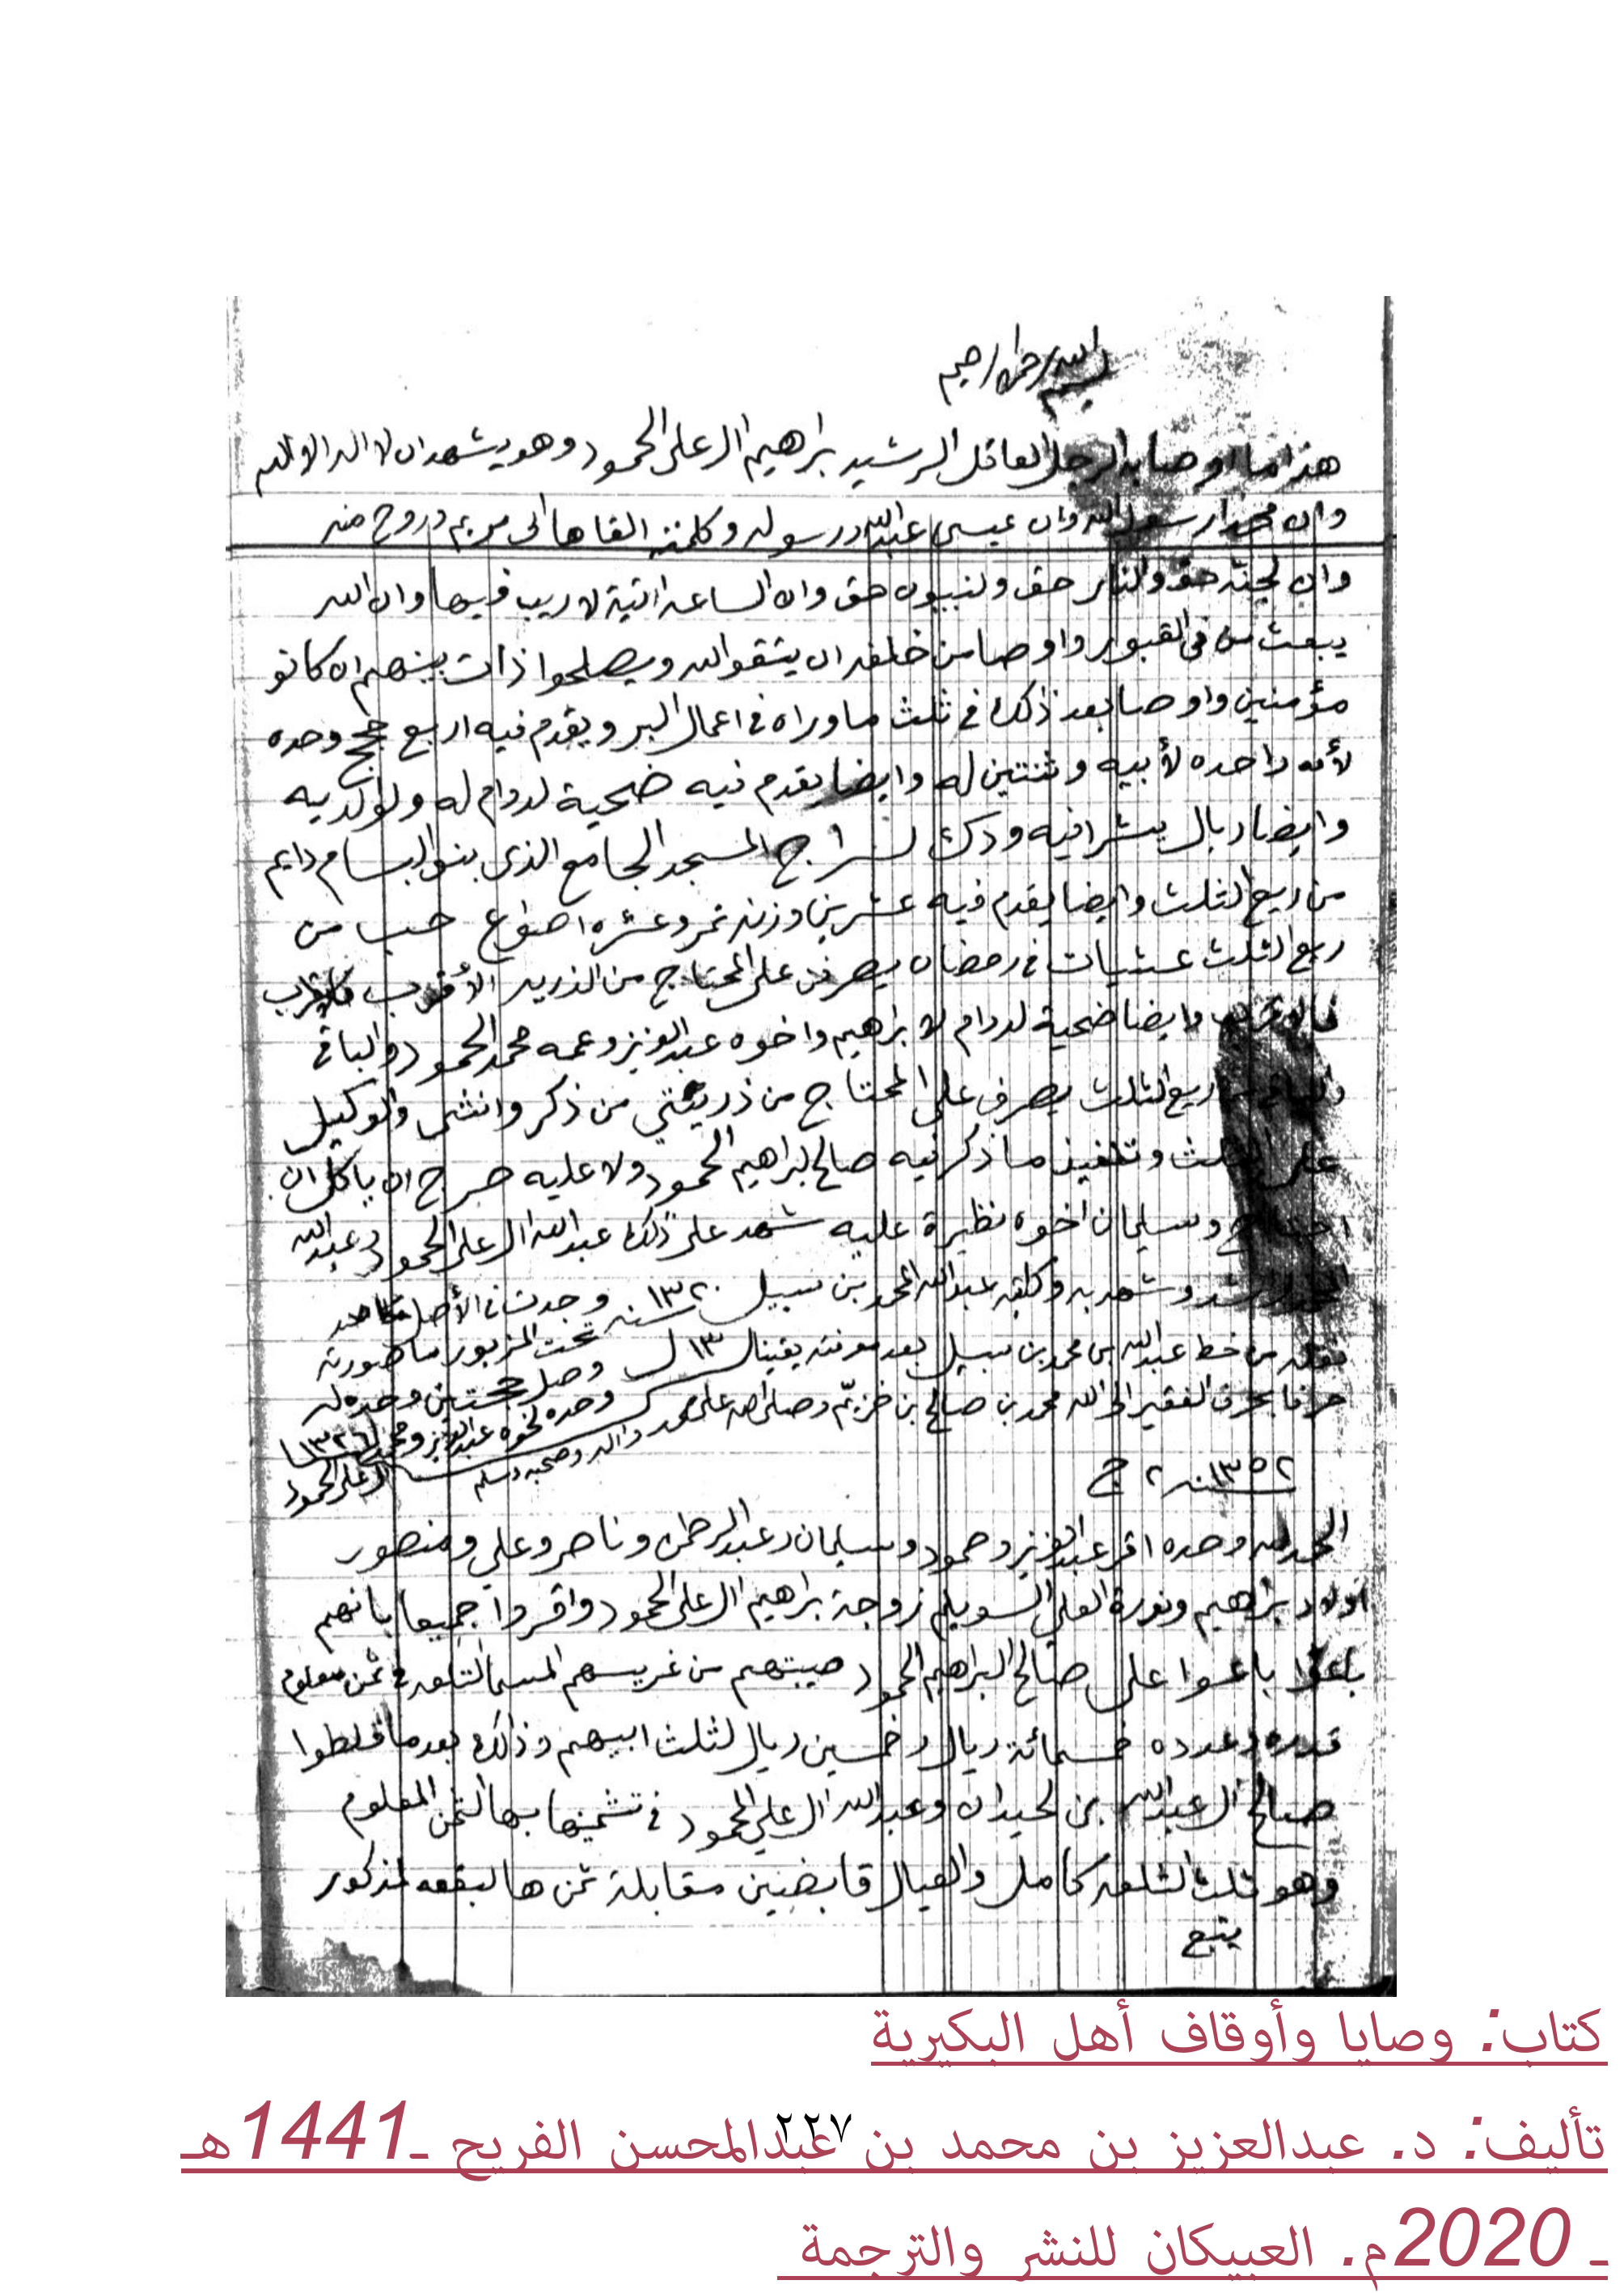 بسم الله الرحمن الرحيم
هذا ما اوصا به الرجل العاقل الرشيد براهيم ال علي الحمود وهو يشهد ان لا اله الا الله
وان محمدا رسول الله وان عيسى عبدالله ورسوله وكلمته القاها الى مريم وروح منه
وان لجنة حق والنار حق ولنبيون حق وان الساعة اتية لا ريب فيها وان الله
يبعث من في القبور واوصا من خلفه ان يتقو الله ويصلحوا ذات بينهم ان كانو
مؤمنين واوصا بعد ذلك في ثلث ما وراه في اعمال البر ويقدم فيه اربع حجج وحده
لأمه واحده لأبيه وثنتين له وايضا يقدم فيه ضحية لدوام له ولوالديه
وايضا ريال يشرا فيه ودك لسراج المسجد الجامع الذي بنو البسام دايم
من ريع الثلث وايضا يقدم فيه عشرين وزنه تمر وعشره اصواع حب من
ريع الثلث عشيات في رمضان يصرفن على المحتاج من الذريه الأقرب فالاقرب
وايضا ضحية لدوام لا براهيم واخوه عبدالعزيز وعمه محمد الحمود والباقي
ريع الثلث يصرف على المحتاج من ذريتي من ذكر وانثى والوكيل
على الثلث وتنفيذ ما ذكر فيه صالح البراهيم الحمود ولا عليه حرج ان ياكل ان
احتاج وسليمان اخوه نظيرة عليه شهد على ذلك عبدالله ال علي الحمود وعبدالله
وشهد به وكتبه عبدالله المحمد بن سبيل سنه ١٣٢٠ وجدت في الأصل
نقله من خط عبدالله بن محمد بن سبيل بعد معرفته يقينا تحت المزبور ما صورته
حرفا بحرف الفقير الى الله محمد بن صالح بن خزيّم وصلى الله على محمد واله وصحبه وسلم
وصل حجتين وحده له
وحده لخوه عبدالعزيز ومحمد ١٣٢٦
ال علي الحمود
١٣٥٢ سنه ٢ ج
الحمد لله وحده اقر عبدالعزيز وحمود وسليمان وعبدالرحمن وناصر وعلي ومنصور
اولاد براهيم ونورة العلي السويلم زوجة براهيم ال علي الحمود واقروا جميعا بانهم
باعوا على صالح البراهيم الحمود صيبتهم من غريسهم المسما في ثمن معلوم
قدره وعدده خمسمائة ريال وخمسين ريال لثلث ابيهم وذالك بعد ما
صالح ال عبدالله بن لحيدان وعبدالله ال علي الحمود في تثمينها بها الثمن المعلوم
وهو ثلث كامل والعيال قابضنين مقابلة ثمن ها لبقعه لمذكور
يتبع
كتاب: وصايا وأوقاف أهل البكيرية
٢٢٧
تأليف: د. عبدالعزيز بن محمد بن عبدالمحسن الفريح ـ1441هـ
ـ 2020م. العبيكان للنشر والترجمة